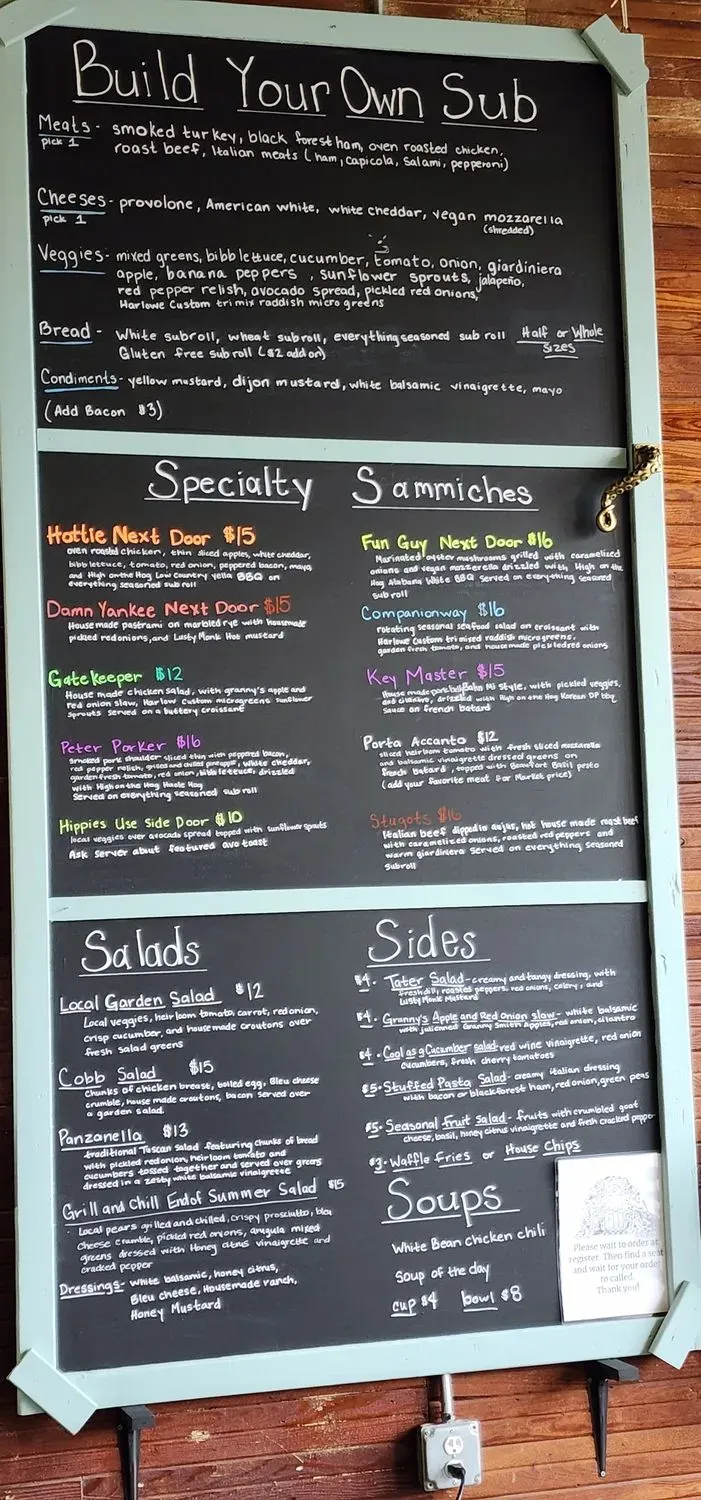 Build Your Own Sub
Meats - smoked turkey, black forest ham, oven roasted chicken,
pick 1 roast beef, Italian meats (ham, capicola, salami, pepperoni)
Cheeses - provolone, American white, white cheddar, vegan mozzarella
pick 1 (shredded)
Veggies - mixed greens, bibb lettuce, cucumber, tomato, onion, giardiniera
apple, banana peppers, sunflower sprouts, jalapeño,
red pepper relish, avocado spread, pickled red onions,
Harlowe Custom tri mix raddish micro greens
Bread - White subroll, wheat subroll, everything seasoned sub roll Half or Whole
Gluten free sub roll ($2 add on) Sizes
Condiments - yellow mustard, dijon mustard, white balsamic vinaigrette, mayo
(Add Bacon $3)
Specialty Sammiches
Hottie Next Door $15
oven roasted chicken, thin sliced apples, white cheddar,
bibb lettuce, tomato, red onion, peppered bacon, mayo,
and High on the Hog Low Country Yella BBQ on
everything seasoned sub roll
Damn Yankee Next Door $15
House made pastrami on marbled rye with housemade
pickled red onions, and Lusty Monk Hot mustard
Gatekeeper $12
House made chicken salad, with granny's apple and
red onion slaw, Harlow Custom microgreens sunflower
sprouts served on a buttery croissant
Peter Porker $16
Smoked pork shoulder sliced thin with peppered bacon,
red pepper relish, grilled and chilled pineapple, white cheddar,
garden fresh tomato, red onion, bibb lettuce, drizzled
with High on the Hog Haole Hog
Served on everything seasoned sub roll
Hippies Use Side Door $10
local veggies over avocado spread topped with sunflower sprouts
Ask server about featured avo toast
Fun Guy Next Door $16
Marinated oyster mushrooms grilled with caramelized
onions and vegan mozzerella drizzled with High on the
Hog Alabama White BBQ Served on everything seasoned
sub roll
Companionway $16
rotating seasonal seafood salad on croissant with
Harlowe Custom tri mixed raddish microgreens,
garden fresh tomato, and housemade pickled red onions
Key Master $15
House made pork belly Bahn Mi style, with pickled veggies,
and cilantro, drizzled with High on the Hog Korean DP bbq
sauce on french batard
Porta Accanto $12
sliced heirloom tomato with fresh sliced mozzarella
and balsamic vinaigrette dressed greens on
french batard, topped with Beaufort Basil pesto
(add your favorite meat for Market price)
Stugots $16
Italian beef dipped in aujus, hot house made roast beef
with caramelized onions, roasted red peppers and
warm giardiniera Served on everything seasoned
subroll
Salads
Local Garden Salad $12
Local veggies, heirloom tomato, carrot, red onion,
crisp cucumber, and house made croutons over
fresh salad greens
Cobb Salad $15
Chunks of chicken breast, boiled egg, Bleu cheese
crumble, house made croutons, bacon served over
a garden salad
Panzanella $13
traditional Tuscan salad featuring chunks of bread
with pickled red onion, heirloom tomato and
cucumbers tossed together and served over greens
dressed in a zesty white balsamic vinaigrette
Grill and Chill End of Summer Salad $15
Local pears grilled and chilled, crispy prosciutto, bleu
cheese crumble, pickled red onions, arugula mixed
greens dressed with Honey citrus vinaigrette and
cracked pepper
Dressings - white balsamic, honey citrus,
Bleu cheese, Housemade ranch,
Honey Mustard
Sides
$4 - Tater Salad - creamy and tangy dressing, with
fresh dill, roasted peppers, red onions, celery, and
Lusty Monk Mustard
$4 - Granny's Apple and Red Onion slaw - white balsamic
with julienned Granny Smith Apples, red onion, cilantro
$4 - Cool as a Cucumber salad - red wine vinaigrette, red onion
cucumbers, fresh cherry tomatoes
$5 - Stuffed Pasta Salad - creamy italian dressing
with bacon or black forest ham, red onion, green peas
$5 - Seasonal Fruit Salad - fruits with crumbled goat
cheese, basil, honey citrus vinaigrette and fresh cracked pepper
$3 - Waffle Fries or House Chips
Soups
White Bean chicken chili
Soup of the day
cup $4 bowl $8
Please wait to order at
register. Then find a seat
and wait for your order
to called.
Thank you!